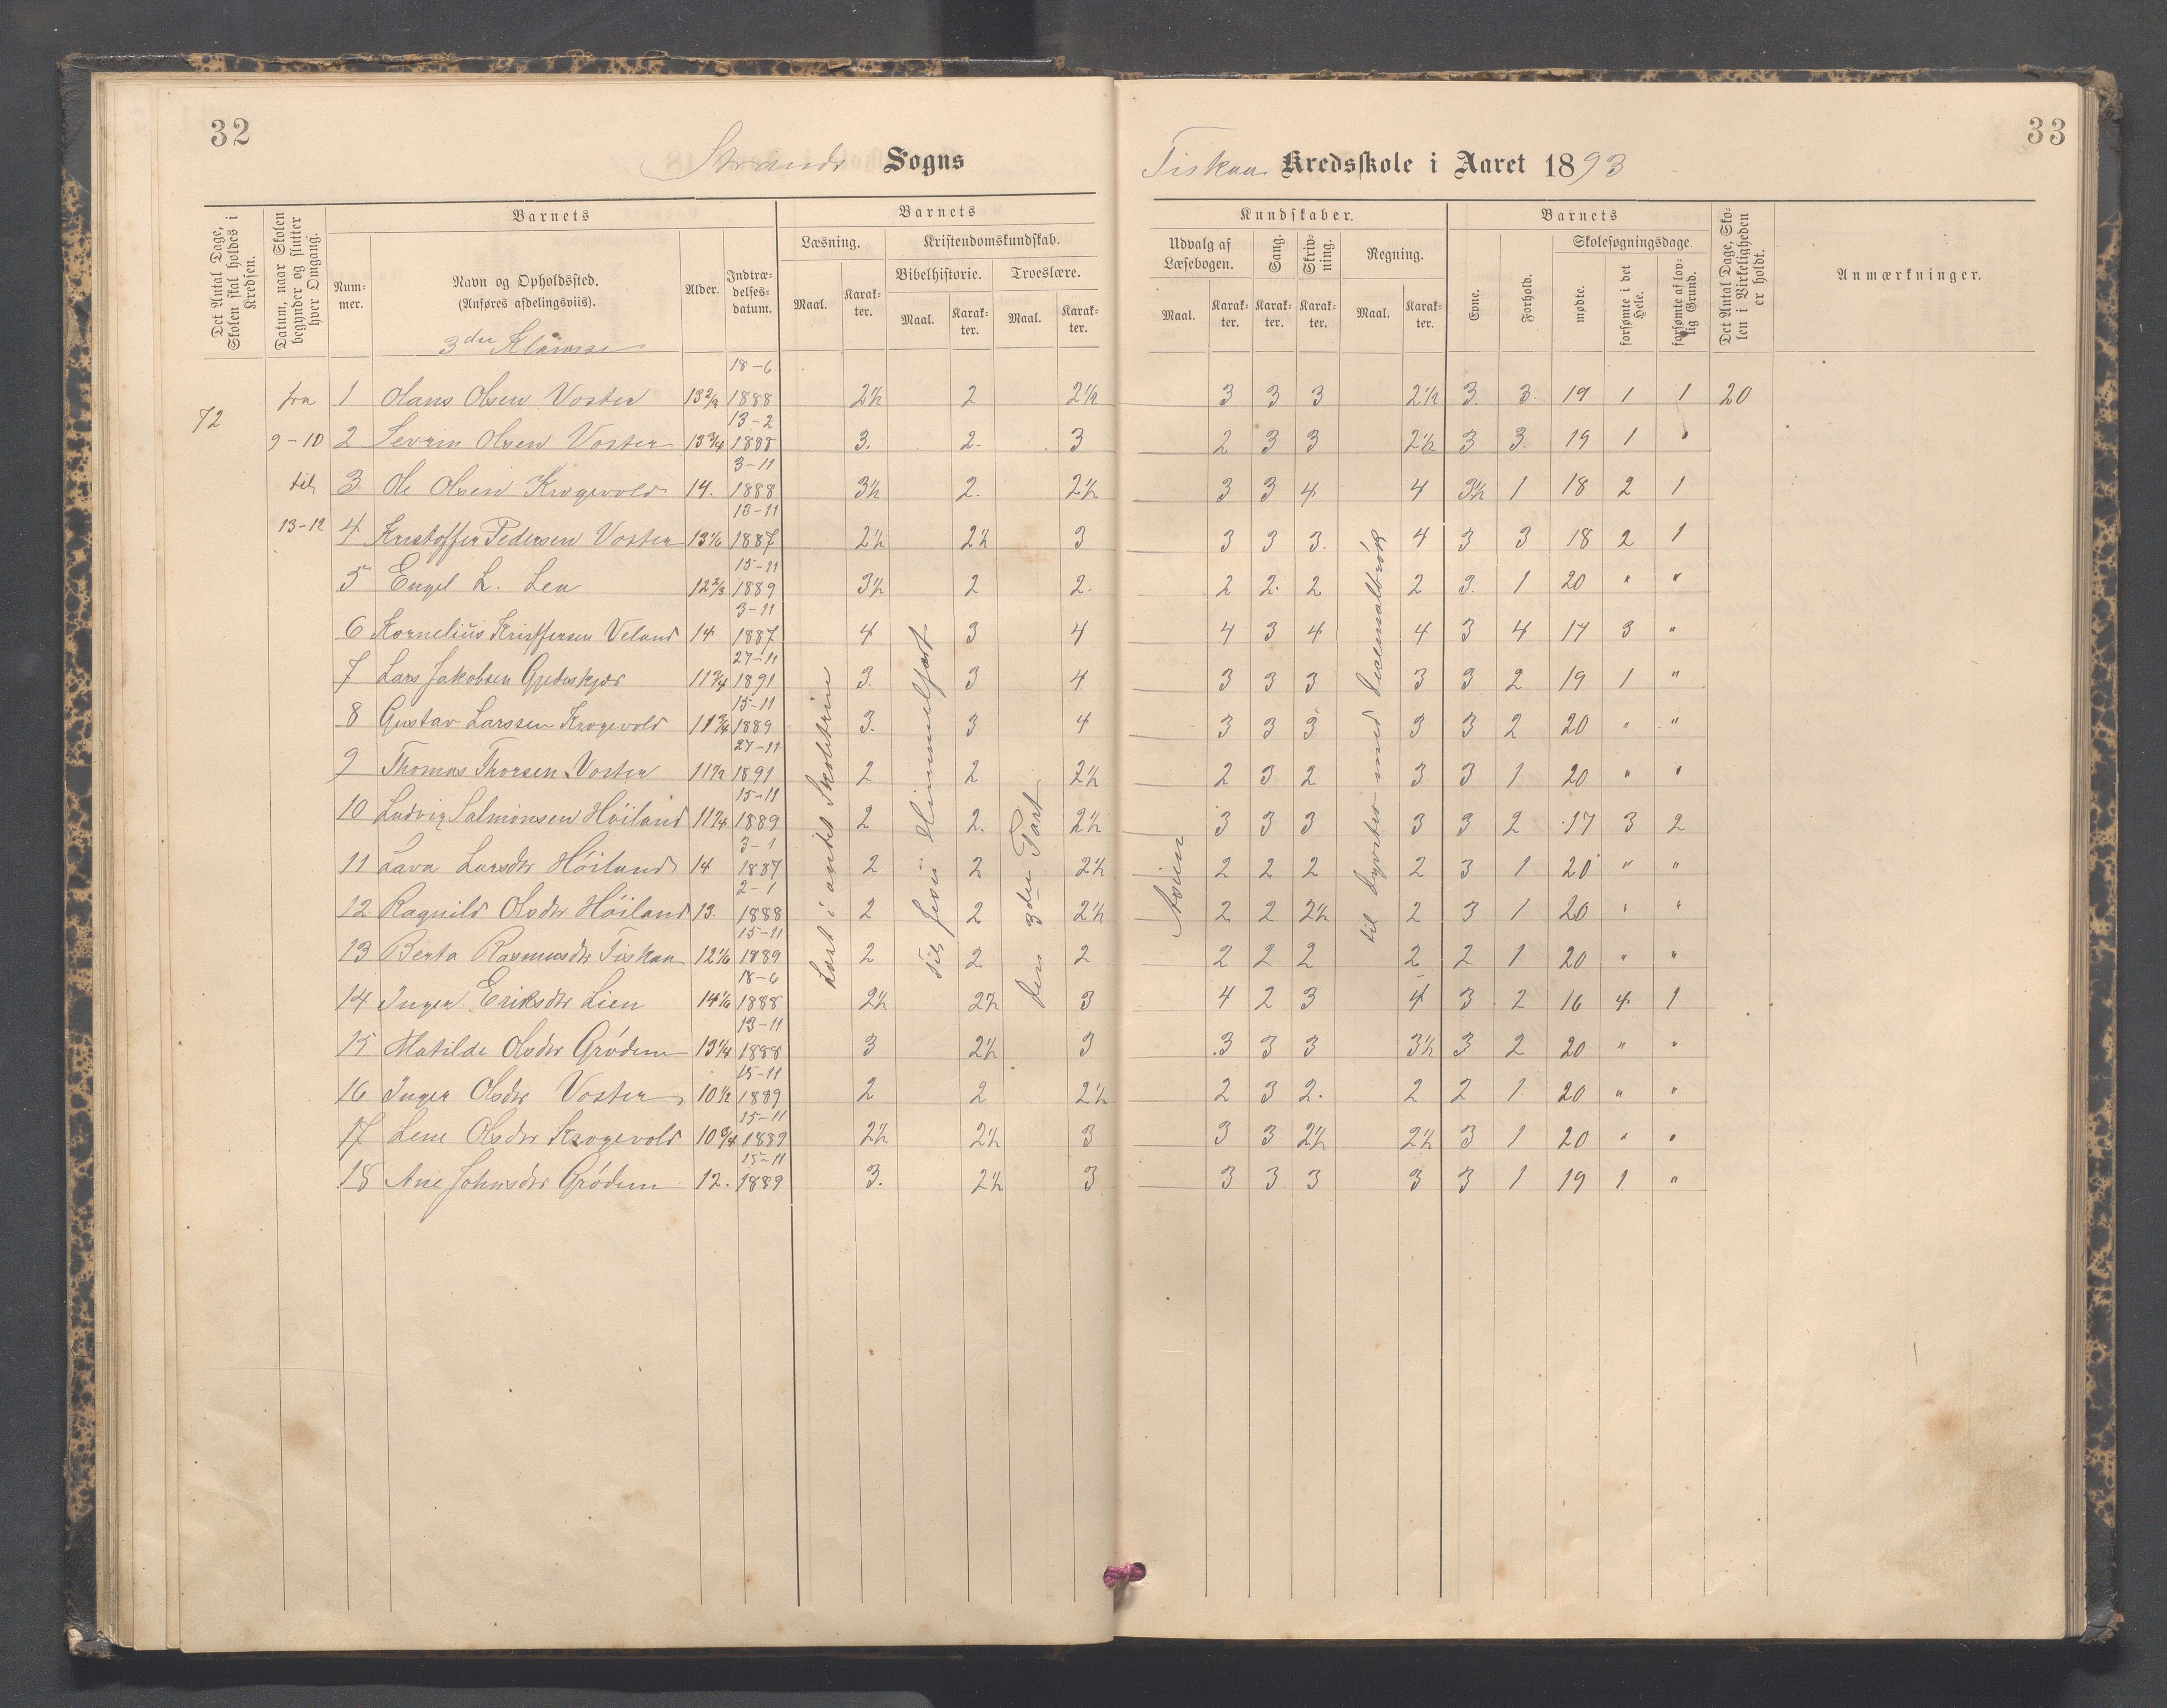 32
Strands Sogns
Det Antal Dage, Skolen skal holdes i Kredsen.
Datum, naar Skolen begynder og slutter hver Omgang.
Barnets
Num-mer.
Navn og Opholdssted.
(Anføres afdelingsviis).
Alder.
Indtræ-delses-datum.
Barnets
Læsning.
Kristendomskundskab.
Bibelhistorie.
Troeslære.
Maal.
Karak-ter.
Maal.
Karak-ter.
Maal.
Karak-ter.
3die Klasse
72
fra
9-10
til
13-12
1 Hans Olsen Voster 13 2/3 18-6 1888 2½ 2 2½
2 Sevrin Olsen Voster 13 3/4 13-2 1888 3. 2. 3
3 Ole Olsen Krogevold 14. 3-11 1888 3½ 2. 2½
4 Kristoffer Pedersen Voster 13 1/6 13-11 1887 2½ 2½ 3
5 Engel L. Lea 12 2/3 15-11 1889 3½ 2 2.
6 Kornelius Kristfersen Veland 14 3-11 1887 4 3 4
7 Lars Jakobsen Gjedeskjær 11 3/4 27-11 1891 3. 3 4
8 Gustav Larssen Krogevold 11 3/4 15-11 1889 3. 3 4
9 Thomas Thorsen Voster 11 1/2 27-11 1891 2 2 2½
10 Ludvig Salmonsen Høiland 11 3/4 15-11 1889 2 2. 2½
11 Lava Larsdtr Høiland 14 3-1 1887 2 2 2½
12 Ragnild Olsdtr Høiland 13. 2-1 1888 2 2 2½
13 Berta Rasmusdtr Tiskaa 12 1/6 15-11 1889 2 2 2
14 Inger Eriksdtr Lien 14 1/6 18-6 1888 2½ 2½ 3
15 Matilde Olsdtr Grødem 13 1/4 13-11 1888 3 2½ 3
16 Inger Olsdtr Voster 10 1/2 15-11 1889 2 2 2½
17 Lene Olsdtr Krogevold 10 3/4 15-11 1889 2½ 2½ 3
18 Ane Johnsdtr Grødem 12. 15-11 1889 3. 2½ 3
Læst i andet Skoletrin
til Jesu Himmelfart
den 3die Part.
33
Tiskaa Kredsskole i Aaret 1893
Kundskaber.
Udvalg af Læsebogen.
Sang.
Skriv-ning.
Regning.
Maal.
Karak-ter.
Karak-ter.
Karak-ter.
Maal.
Karak-ter.
Barnets
Evne.
Forhold.
Skolesøgningsdage.
mødte.
forsømte i det Hele.
forsømte af lov-lig Grund.
Det Antal Dage, Sko-len i Virkeligheden er holdt.
Anmærkninger.
3 3 3 2½ 3. 3. 19 1 1 20
2 3 3 2½ 3 3. 19 1 "
3 3 4 4 3½ 1 18 2 1
3 3 3. 4 3 3 18 2 1
2 2. 2 2 3. 1 20 " "
4 3 4 4 3 4 17 3 "
3 3 3 3 3 2 19 1 "
3 3 3 3 3 2 20 " "
2 3 2 3 3 1 20 " "
3 3 3 3 3 2 17 3 2
2 2 2 2 3 1 20 " "
2 2 2½ 2 3 1 20 " "
2 2 2 2 2 1 20 " "
4 2 3 4 3 2 16 4 1
3 3 3 3½ 3 2 20 " "
2 3 2. 2 2 1 20 " "
3 3 2½ 2½ 3 1 20 " "
3 3 3 3 3 1 19 1 "
Asien
til Dyster med Decimalbrøk